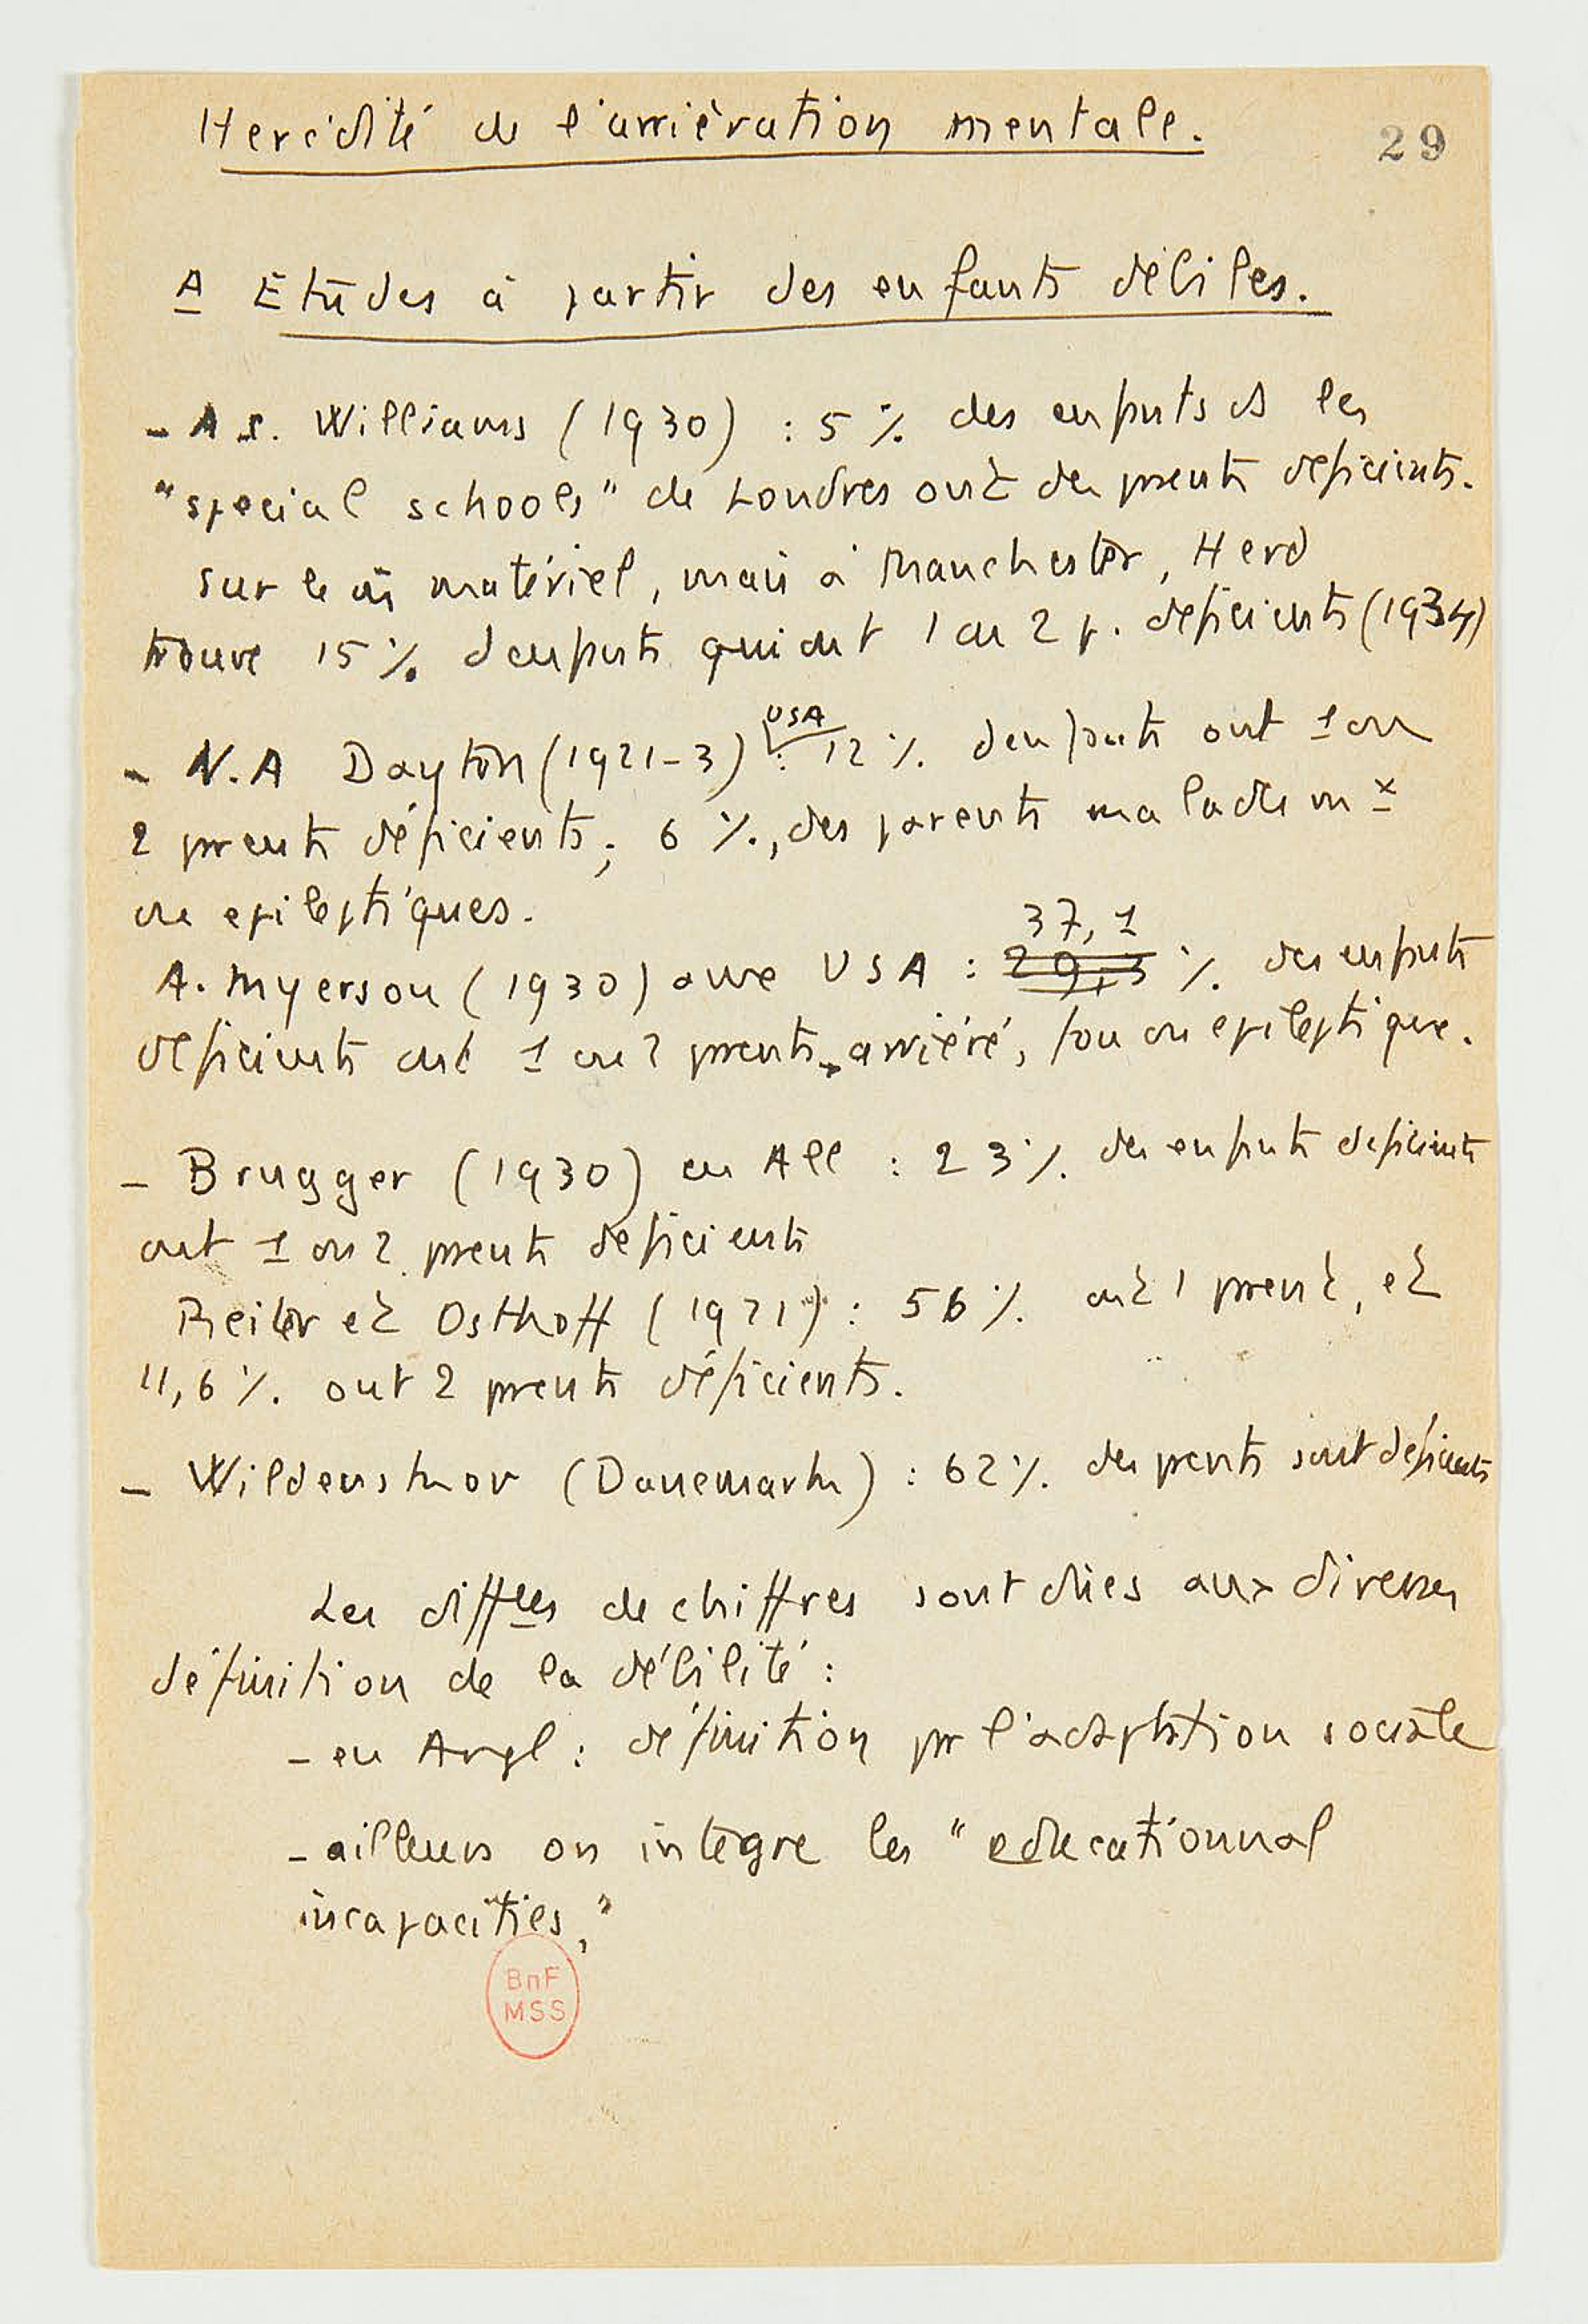 Heredité de l'arriération mentale.
29
A Etudes à partir des enfants débiles.
- A S. Williams (1930) : 5 % des enfants ds les
"special schools" de Londres ont des parents deficients.
Sur le m̄ matériel, mais à Manchester, Herd
trouve 15 % d'enfants qui ont 1 ou 2 p. deficients (1934)
USA
- N.A Dayton (1921-3) : 12 % d'enfants ont 1 ou
2 parents déficients ; 6 %, des parents malades m x
ou epileptiques.
37,1
A. Myerson (1930) aux USA : 29,3 % des enfants
deficients ont 1 ou 2 parents arriéré, fou ou epileptique.
- Brugger (1930) en All : 23 % des enfants deficients
ont 1 ou 2 parents deficients
Reiter et Osthoff (1921) : 56 % ont 1 parent, et
11,6 % ont 2 parents déficients.
- Wildenskov (Danemark) : 62 % des parents sont deficients
Les diffces de chiffres sont dûes aux diverses
définition de la débilité :
- en Angl : définition par l'adaptation sociale
- ailleurs on intègre les "educationnal
incapacities,"
BnF
MSS